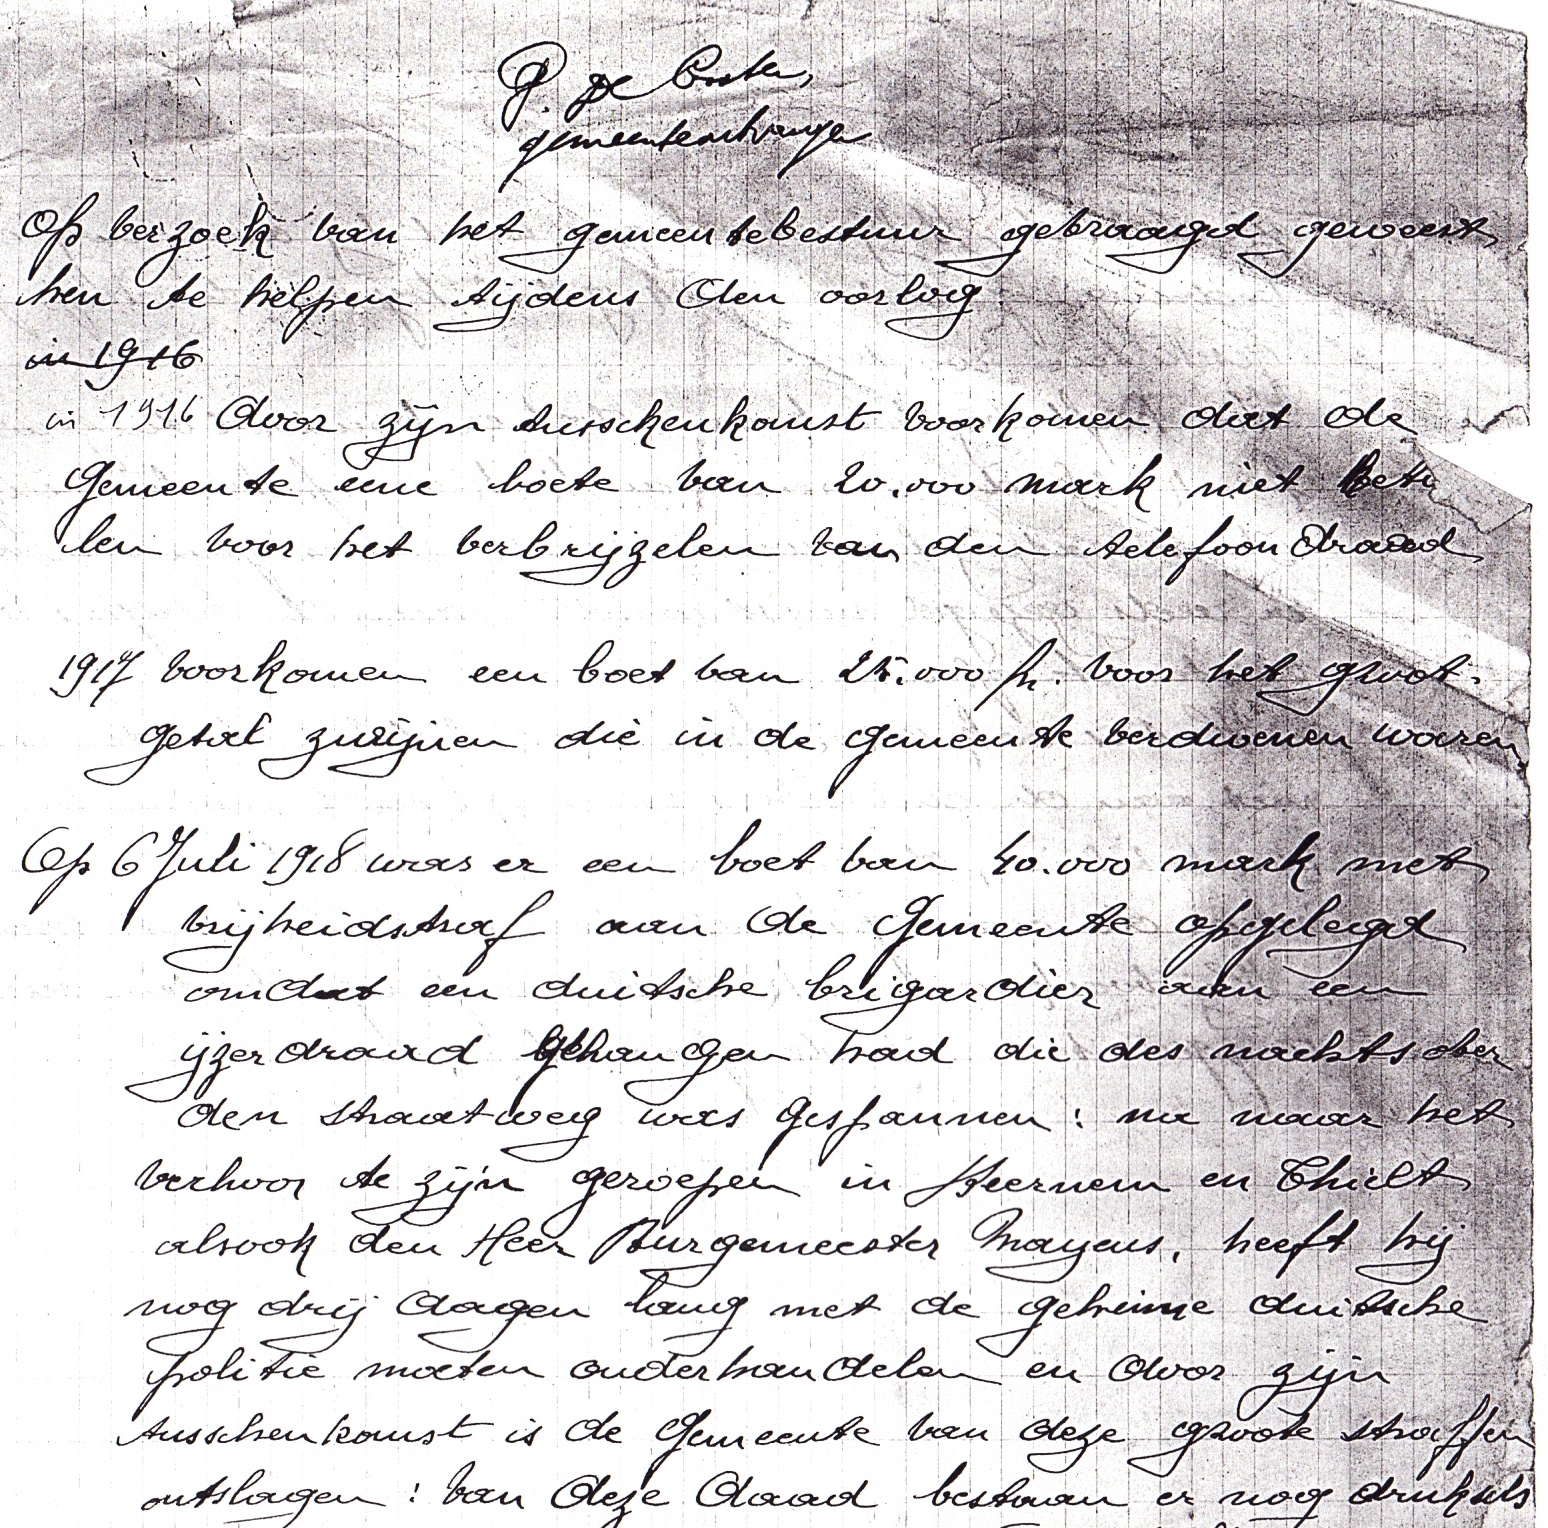 P. De
Op verzoek van het gemeentebestuur gevraagd geweest
hen te helpen tijdens den oorlog.
in 1916
in 1916 door zijn tusschenkomst voorkomen dat de
Gemeente eene boete van 20.000 mark niet beta
len voor het verbrijzelen van den telefoondraad
1917 voorkomen een boet van 25.000 fr. voor het groot-
getal zwijnen die in de gemeente verdwenen waren
Op 6 Juli 1918 was er een boet van 40.000 mark met
vrijheidstraf aan de Gemeente opgelegd
omdat een duitsche brigardier aan een
ijzerdraad gehangen had die des nachts over
den straatweg was gespannen : na naar het
verhoor te zijn geroepen in Beernem en Thielt
alsook den Heer Burgemeester Mayens, heeft hij
nog drij dagen lang met de geheime duitsche
politie moeten onderhandelen en door zijn
tusschenkomst is de Gemeente van deze groote straffen
ontslagen : van deze daad bestaan er nog druksels